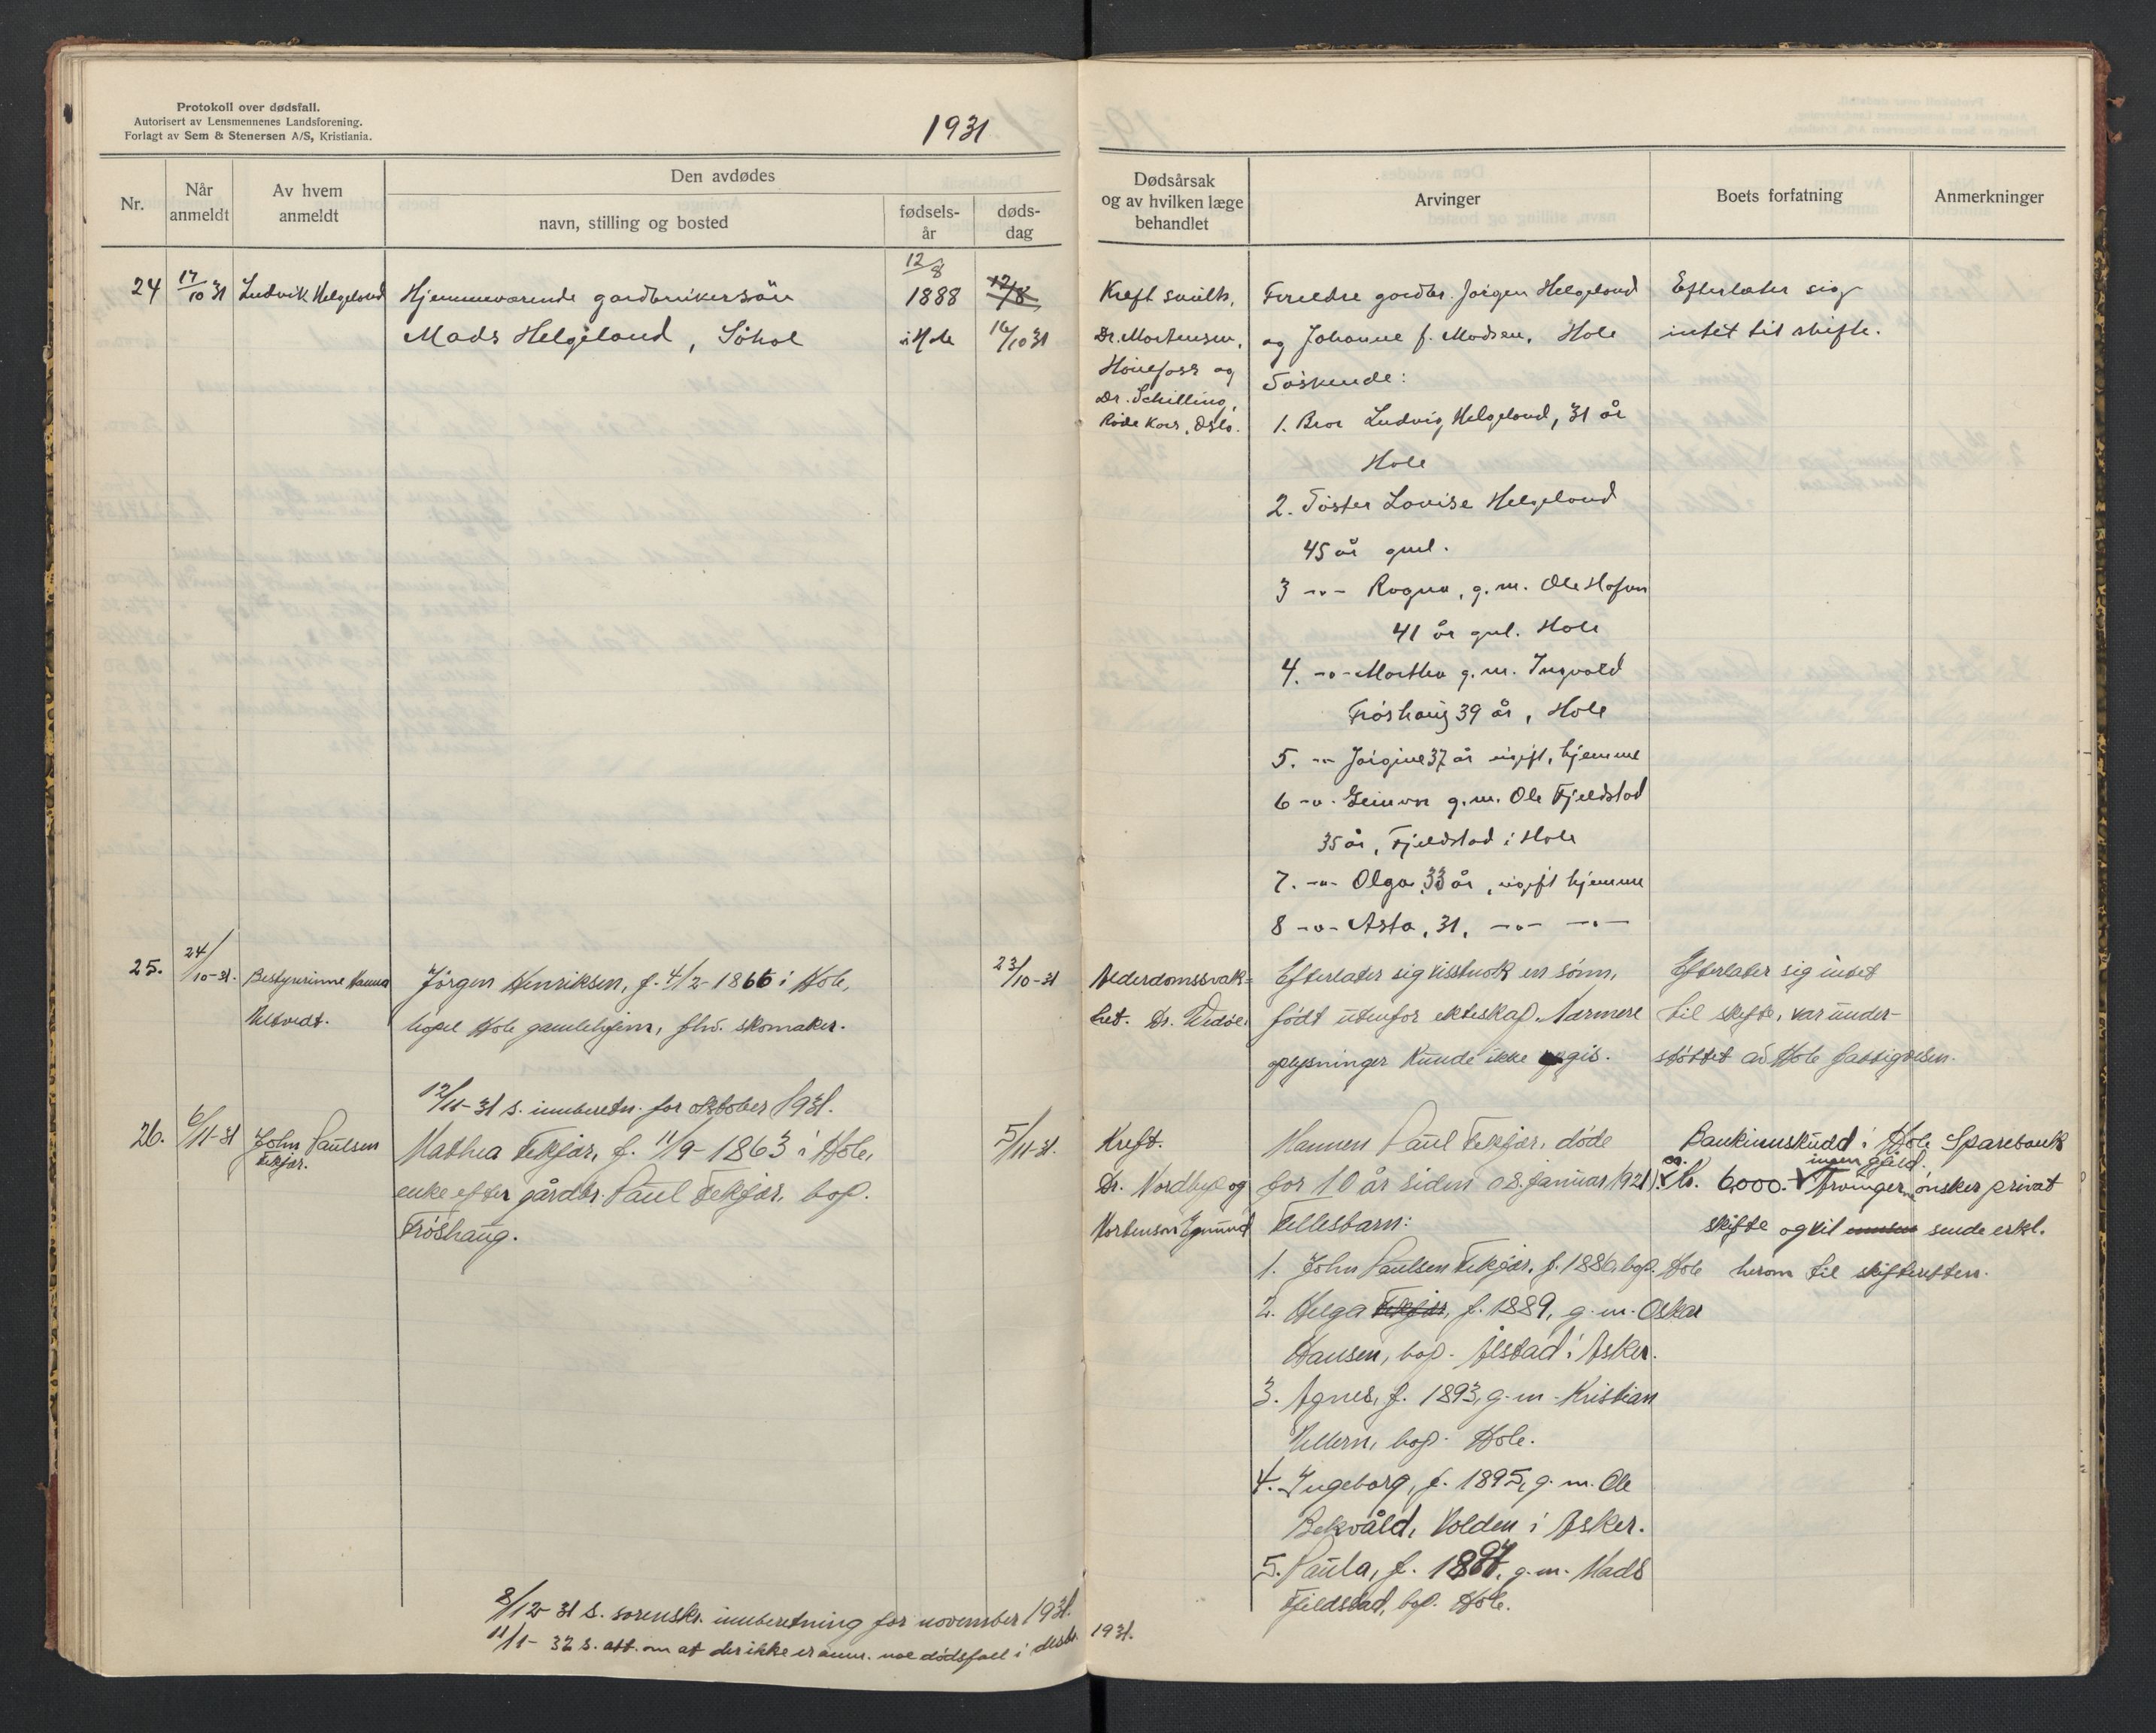 Protokoll over dødsfall.
Autorisert av Lensmennenes Landsforening.
Forlagt av Sem & Stenersen A/S, Kristiania.
1931
Nr.
Når anmeldt
Av hvem anmeldt
Den avdødes
navn, stilling og bosted
fødsels-år
døds-dag
Dødsårsak og av hvilken læge behandlet
Arvinger
Boets forfatning
Anmerkninger
24
17/10 31
Ludvik Helgeland
Hjemmeværende gardbrukersøn
Mads Helgeland, Søhol
12/8
1888
i Hole
12/8
16/10 31
Kreft
Dr. Mortensen,
Hönefoss og
Dr. Schilling,
Röde Kors, Oslo.
Foreldre gardbr. Jørgen Helgeland
og Johanne f. Madsen, Hole
Søskende:
1. Bror Ludvig Helgeland, 31 år
Hole
2. Søster Lovise Helgeland
45 år gml.
3 -"- Ragna, g.m. Ole
41 år gml. Hole
4. -"- Martha g.m. Ingvald
Frøshaug 39 år, Hole
5. -"- Jørgine 37 år ugift, hjemme
6 -"- g.m. Ole Fjeldstad
35 år, Fjeldstad i Hole
7. -"- Olga, 33 år, ugift hjemme
8 -"- Asta, 31, -"- -"-
Efterlater sig
intet til skifte.
25.
24/10-31.
Bestyrerinne Hanna
Jörgen Henriksen, f. 4/2-1866 i Hole,
bopel Hole gamlehjem, fhv. skomaker.
23/10-31
Alderdomssvak-
het. Dr.
Efterlater sig visstnok en sönn,
födt utenfor ekteskap. Nærmere
oplysninger kunde ikke gis.
Efterlater sig intet
til skifte, var under-
stöttet av Hole fattigvesen.
12/11-31 s. innberetn. for oktober 1931.
26.
6/11-31
John Paulsen
Fekjær.
Mathea Fekjær, f. 11/9-1863 i Hole,
enke efter gårdbr. Paul Fekjær, bop.
Fröshaug.
5/11-31.
Kreft.
Dr. Nordbye og
Mortenson
Mannen Paul Fekjær, döde
for 10 år siden (8. januar 1921).
Fellesbarn:
1. John Paulsen Fekjær, f. 1886, bop. Hole
2. Helga Fekjær, f. 1889, g.m. Oskar
Hansen, bop. Ålstad i Asker.
3. Agnes, f. 1893, g.m. Kristian
Vellern, bop. Hole.
4. Ingeborg, f. 1895, g.m. Ole
Bekvåld, Volden i Asker.
5. Paula, f. 1897, g.m. Mads
Fjeldstad, bop. Hole.
Bankinnskudd i Hole Sparebank
ca. kr. 6000. ingen gjeld. Arvingene önsker privat
skifte og vil sende erkl.
herom til skifteretten.
8/12-31 s. sorenskr. innberetning for november 1931.
11/1-32 s. att. om at der ikke er anm. noe dödsfall i desbr. 1931.